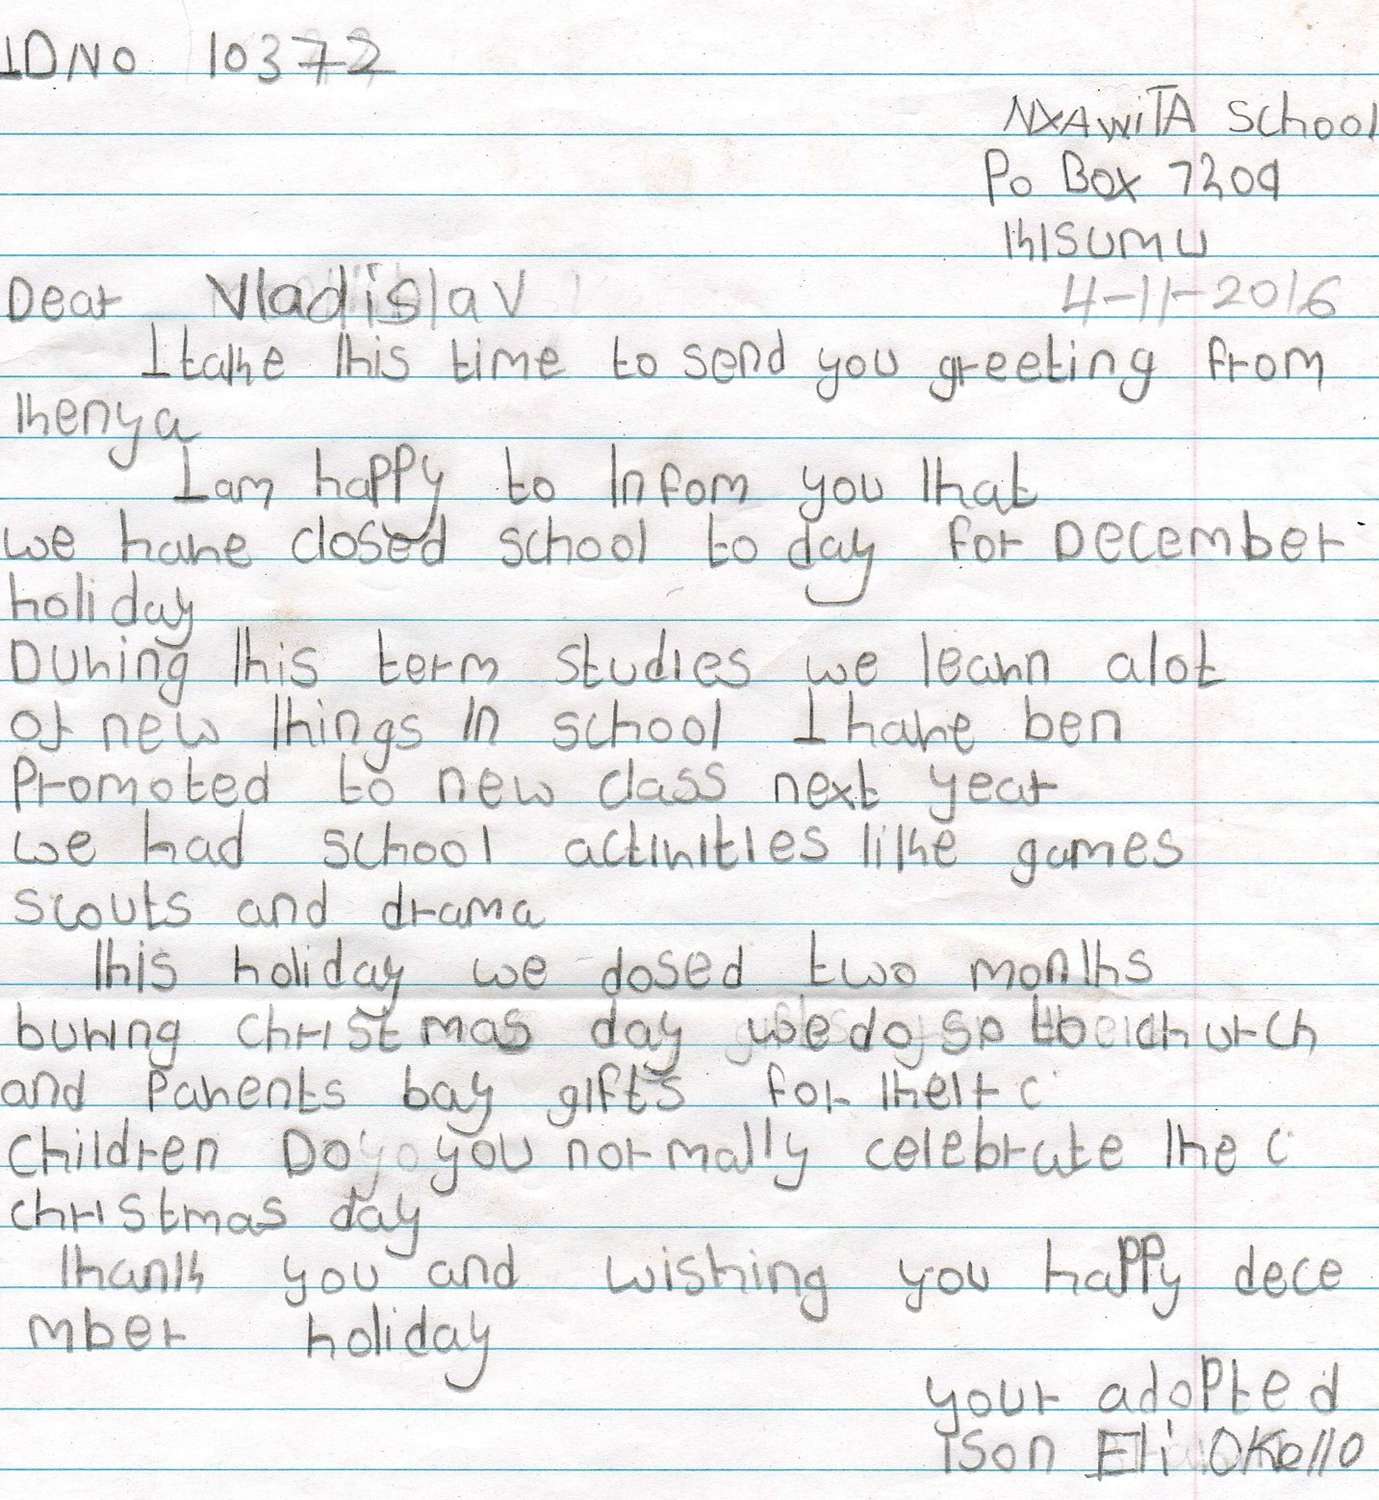 ID NO 10372
NXAWITA School
Po Box 7209
KISUMU
Dear Vladislav
4-11-2016
I take this time to send you greeting from
kenya
I am happy to Infom you that
we have closed school to day for December
holiday
During this term studies we learn alot
of new things In school I have ben
Promoted to new class next year
we had school activities like games
scouts and drama
This holiday we closed two months
During christmas day we do go to church
and Parents bay gifts for their c
children Do you normally celebrate the c
christmas day
Thank you and wishing you happy dece
mber holiday
your adopted
son Eli Okello